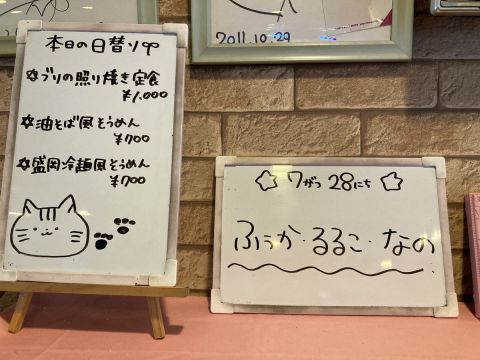 本日の日替り
☆ブリの照り焼き定食
¥1,000
☆油そば風そうめん
¥700
☆盛岡冷麺風そうめん
¥700
2011.10.29
☆ 7がつ 28にち ☆
ふうか・るるこ・なの